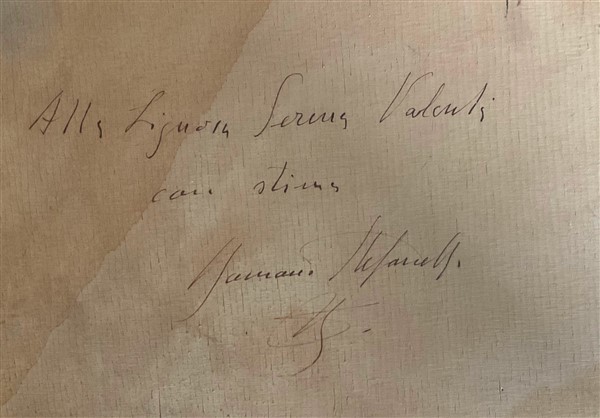 Alla Signora Serena Valenti
con stima
Romano Stefanelli